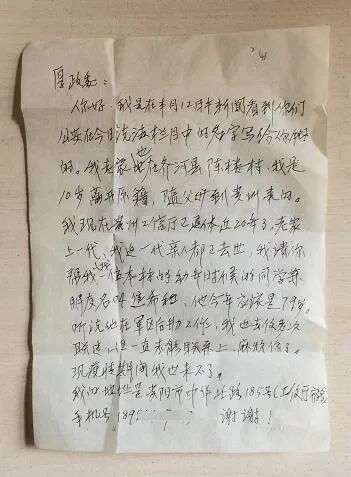 厚政委:
你好:我是在半月12日半新闻看到你们
公安在今日 栏目中的名字写给你
的。我老家也在齐河县陈楼村,我是
10岁离开原籍,随父母到贵州来的。
我现在贵州工信厅已退休近20年了,老家
上一代,我这一代亲人都已去世,我请你
帮我 一位本村的幼年时候的同学
朋友名叫 他今年应该是79岁。
听说他在军区后勤工作,我也去信多次
联远,但一直未能联系上,麻烦你了。
现疫情期间我也来不了。
我的地址是贵阳市中华北路185号(工信厅宿舍
手机号189
谢谢!